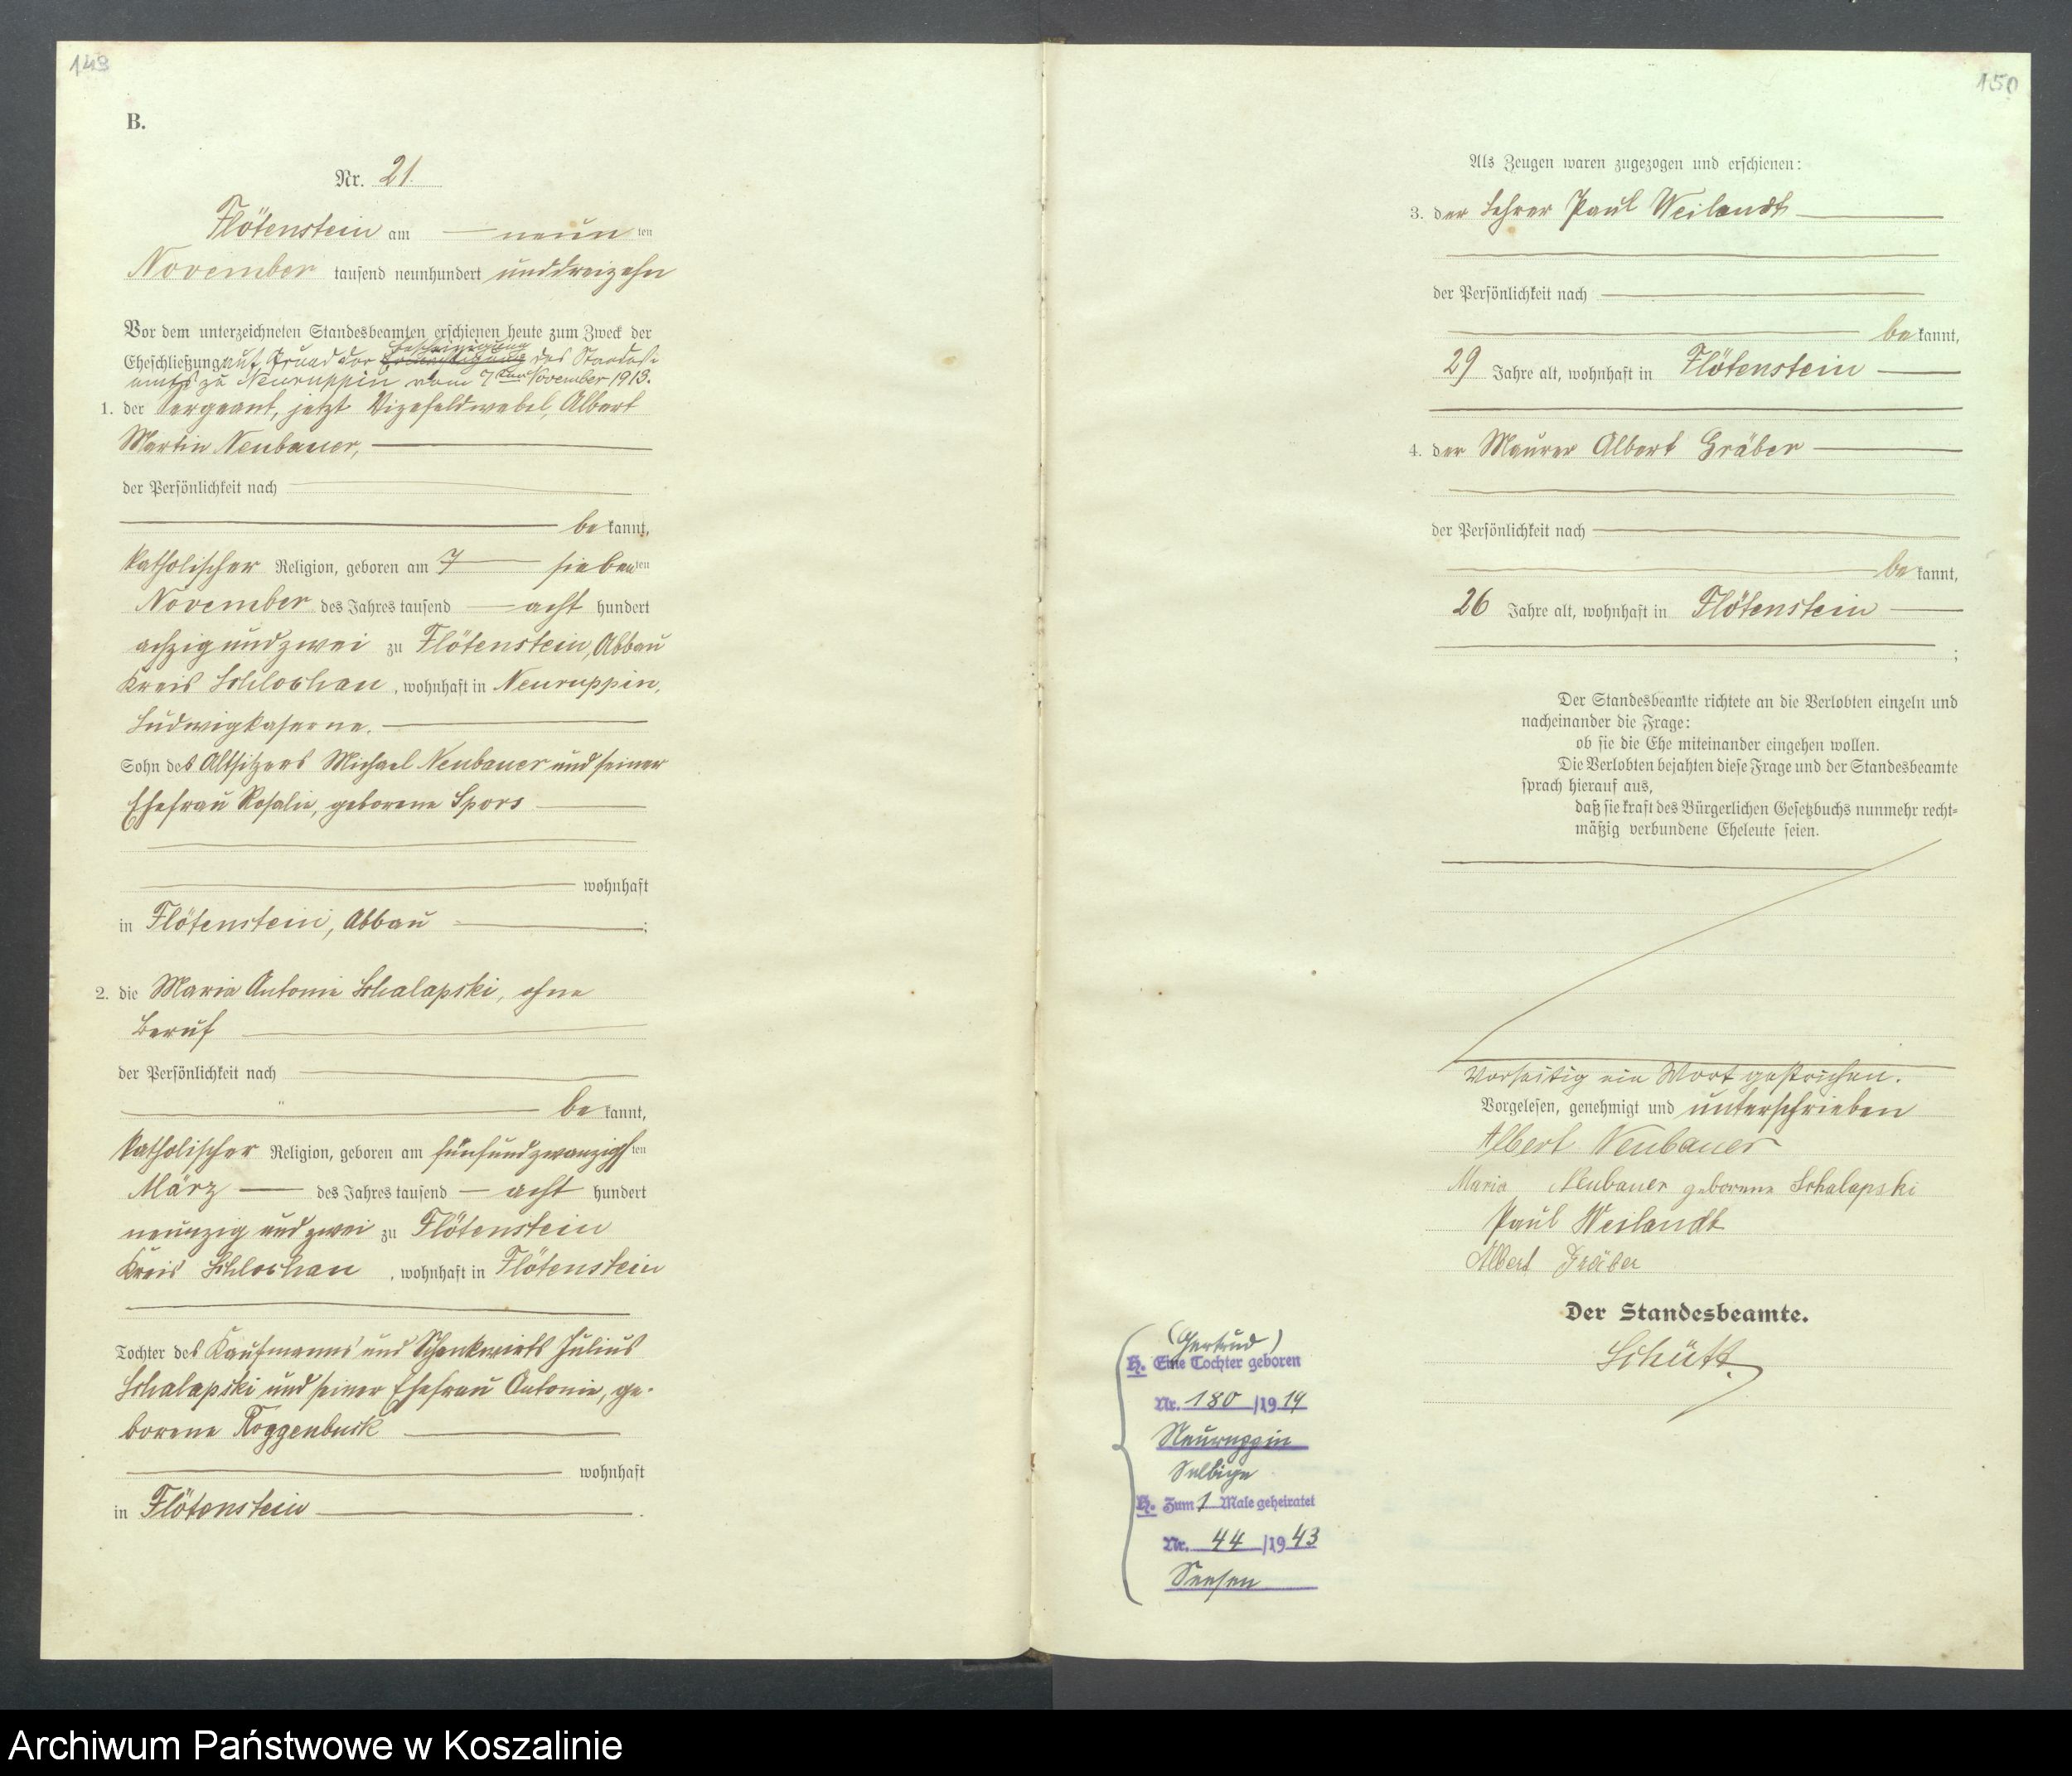 149
B.
Nr. 21.
Flötenstein am neun ten
November tausend neunhundert unddreizehn
Vor dem unterzeichneten Standesbeamten erschienen heute zum Zweck der
Bescheinigung
Eheschließung auf Grund der des Standes-
amts zu Neuruppin vom 7ten November 1913.
1. der Sergeant, jetzt Vizefeldwebel, Albert
Martin Neubauer,
der Persönlichkeit nach
be kannt,
katholischer Religion, geboren am 7 sieben ten
November des Jahres tausend acht hundert
achzig und zwei zu Flötenstein, Abbau
Kreis Schlochau, wohnhaft in Neuruppin,
Ludwigkaserne.
Sohn des Altsitzers Michael Neubauer und seiner
Ehefrau Rosalie, geborene Spors
wohnhaft
in Flötenstein, Abbau ;
2. die Maria Antonie Schalapski, ohne
Beruf
der Persönlichkeit nach
be kannt,
katholischer Religion, geboren am fünfundzwanzigsten
März des Jahres tausend acht hundert
neunzig und zwei zu Flötenstein
Kreis Schlochau, wohnhaft in Flötenstein
Tochter des Kaufmanns und Schankwirts Julius
Schalapski und seiner Ehefrau Antonie, ge-
borene Roggenbuck
wohnhaft
in Flötenstein .
150
Als Zeugen waren zugezogen und erschienen:
3. der Lehrer Paul Weilandt
der Persönlichkeit nach
be kannt,
29 Jahre alt, wohnhaft in Flötenstein
4. der Maurer Albert Gräber
der Persönlichkeit nach
be kannt,
26 Jahre alt, wohnhaft in Flötenstein
;
Der Standesbeamte richtete an die Verlobten einzeln und
nacheinander die Frage:
ob sie die Ehe miteinander eingehen wollen.
Die Verlobten bejahten diese Frage und der Standesbeamte
sprach hierauf aus,
daß sie kraft des Bürgerlichen Gesetzbuchs nunmehr recht-
mäßig verbundene Eheleute seien.
Vorseitig ein Wort gestrichen.
Vorgelesen, genehmigt und unterschrieben
Albert Neubauer
Maria Neubauer geborene Schalapski
Paul Weilandt
Albert Gräber
Der Standesbeamte.
Schütt.
(Gertrud)
H. Eine Tochter geboren
Nr. 180 /1914
Neuruppin
Selbige
H. Zum 1 Male geheiratet
Nr. 44 /1943
Seesen
Archiwum Państwowe w Koszalinie